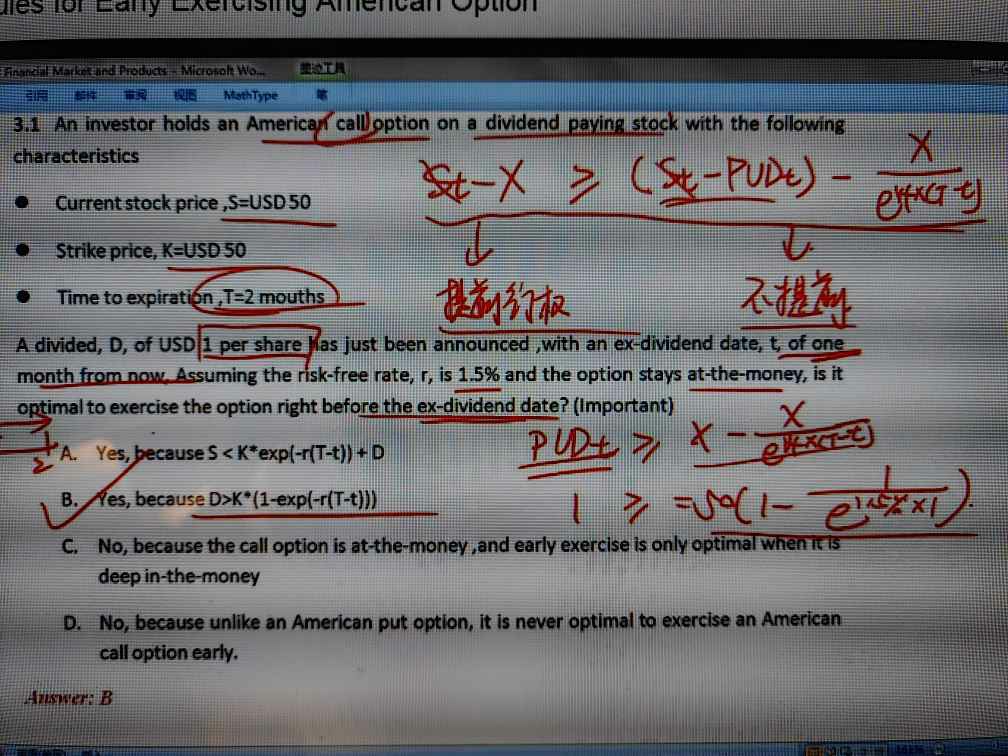 ules for Early Exercising American Option
Financial Market and Products - Microsoft Wo...
引用 邮件 审阅 视图 MathType
3.1 An investor holds an American call option on a dividend paying stock with the following
characteristics
St-X ≥ (St-PVDt) - X
● Current stock price ,S=USD 50
● Strike price, K=USD 50
● Time to expiration ,T=2 mouths
提前行权
不提前
A divided, D, of USD 1 per share Has just been announced ,with an ex-dividend date, t, of one
month from now. Assuming the risk-free rate, r, is 1.5% and the option stays at-the-money, is it
optimal to exercise the option right before the ex-dividend date? (Important)
PVDt ≥ X - X
A. Yes, because S < K*exp(-r(T-t)) + D
B. Yes, because D>K*(1-exp(-r(T-t)))
1 ≥ =50(1- 1
C. No, because the call option is at-the-money ,and early exercise is only optimal when it is
deep in-the-money
D. No, because unlike an American put option, it is never optimal to exercise an American
call option early.
Answer: B